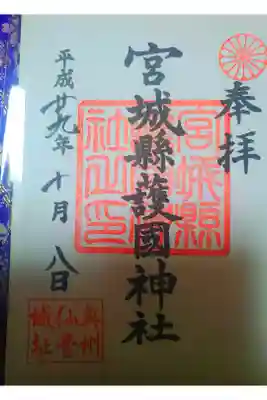 奉拝
宮城縣護國神社
平成廿九年十月八日
宮城縣
社之印
奥州
仙臺
城址